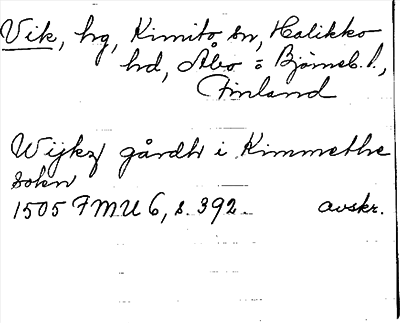 Vik, hg, Kimito sn, Halikko
hd, Åbo o Björneb. l.,
Finland
Wijkz gårdh i Kimmethe
sokn
1505 FMU 6, s. 392. avskr.